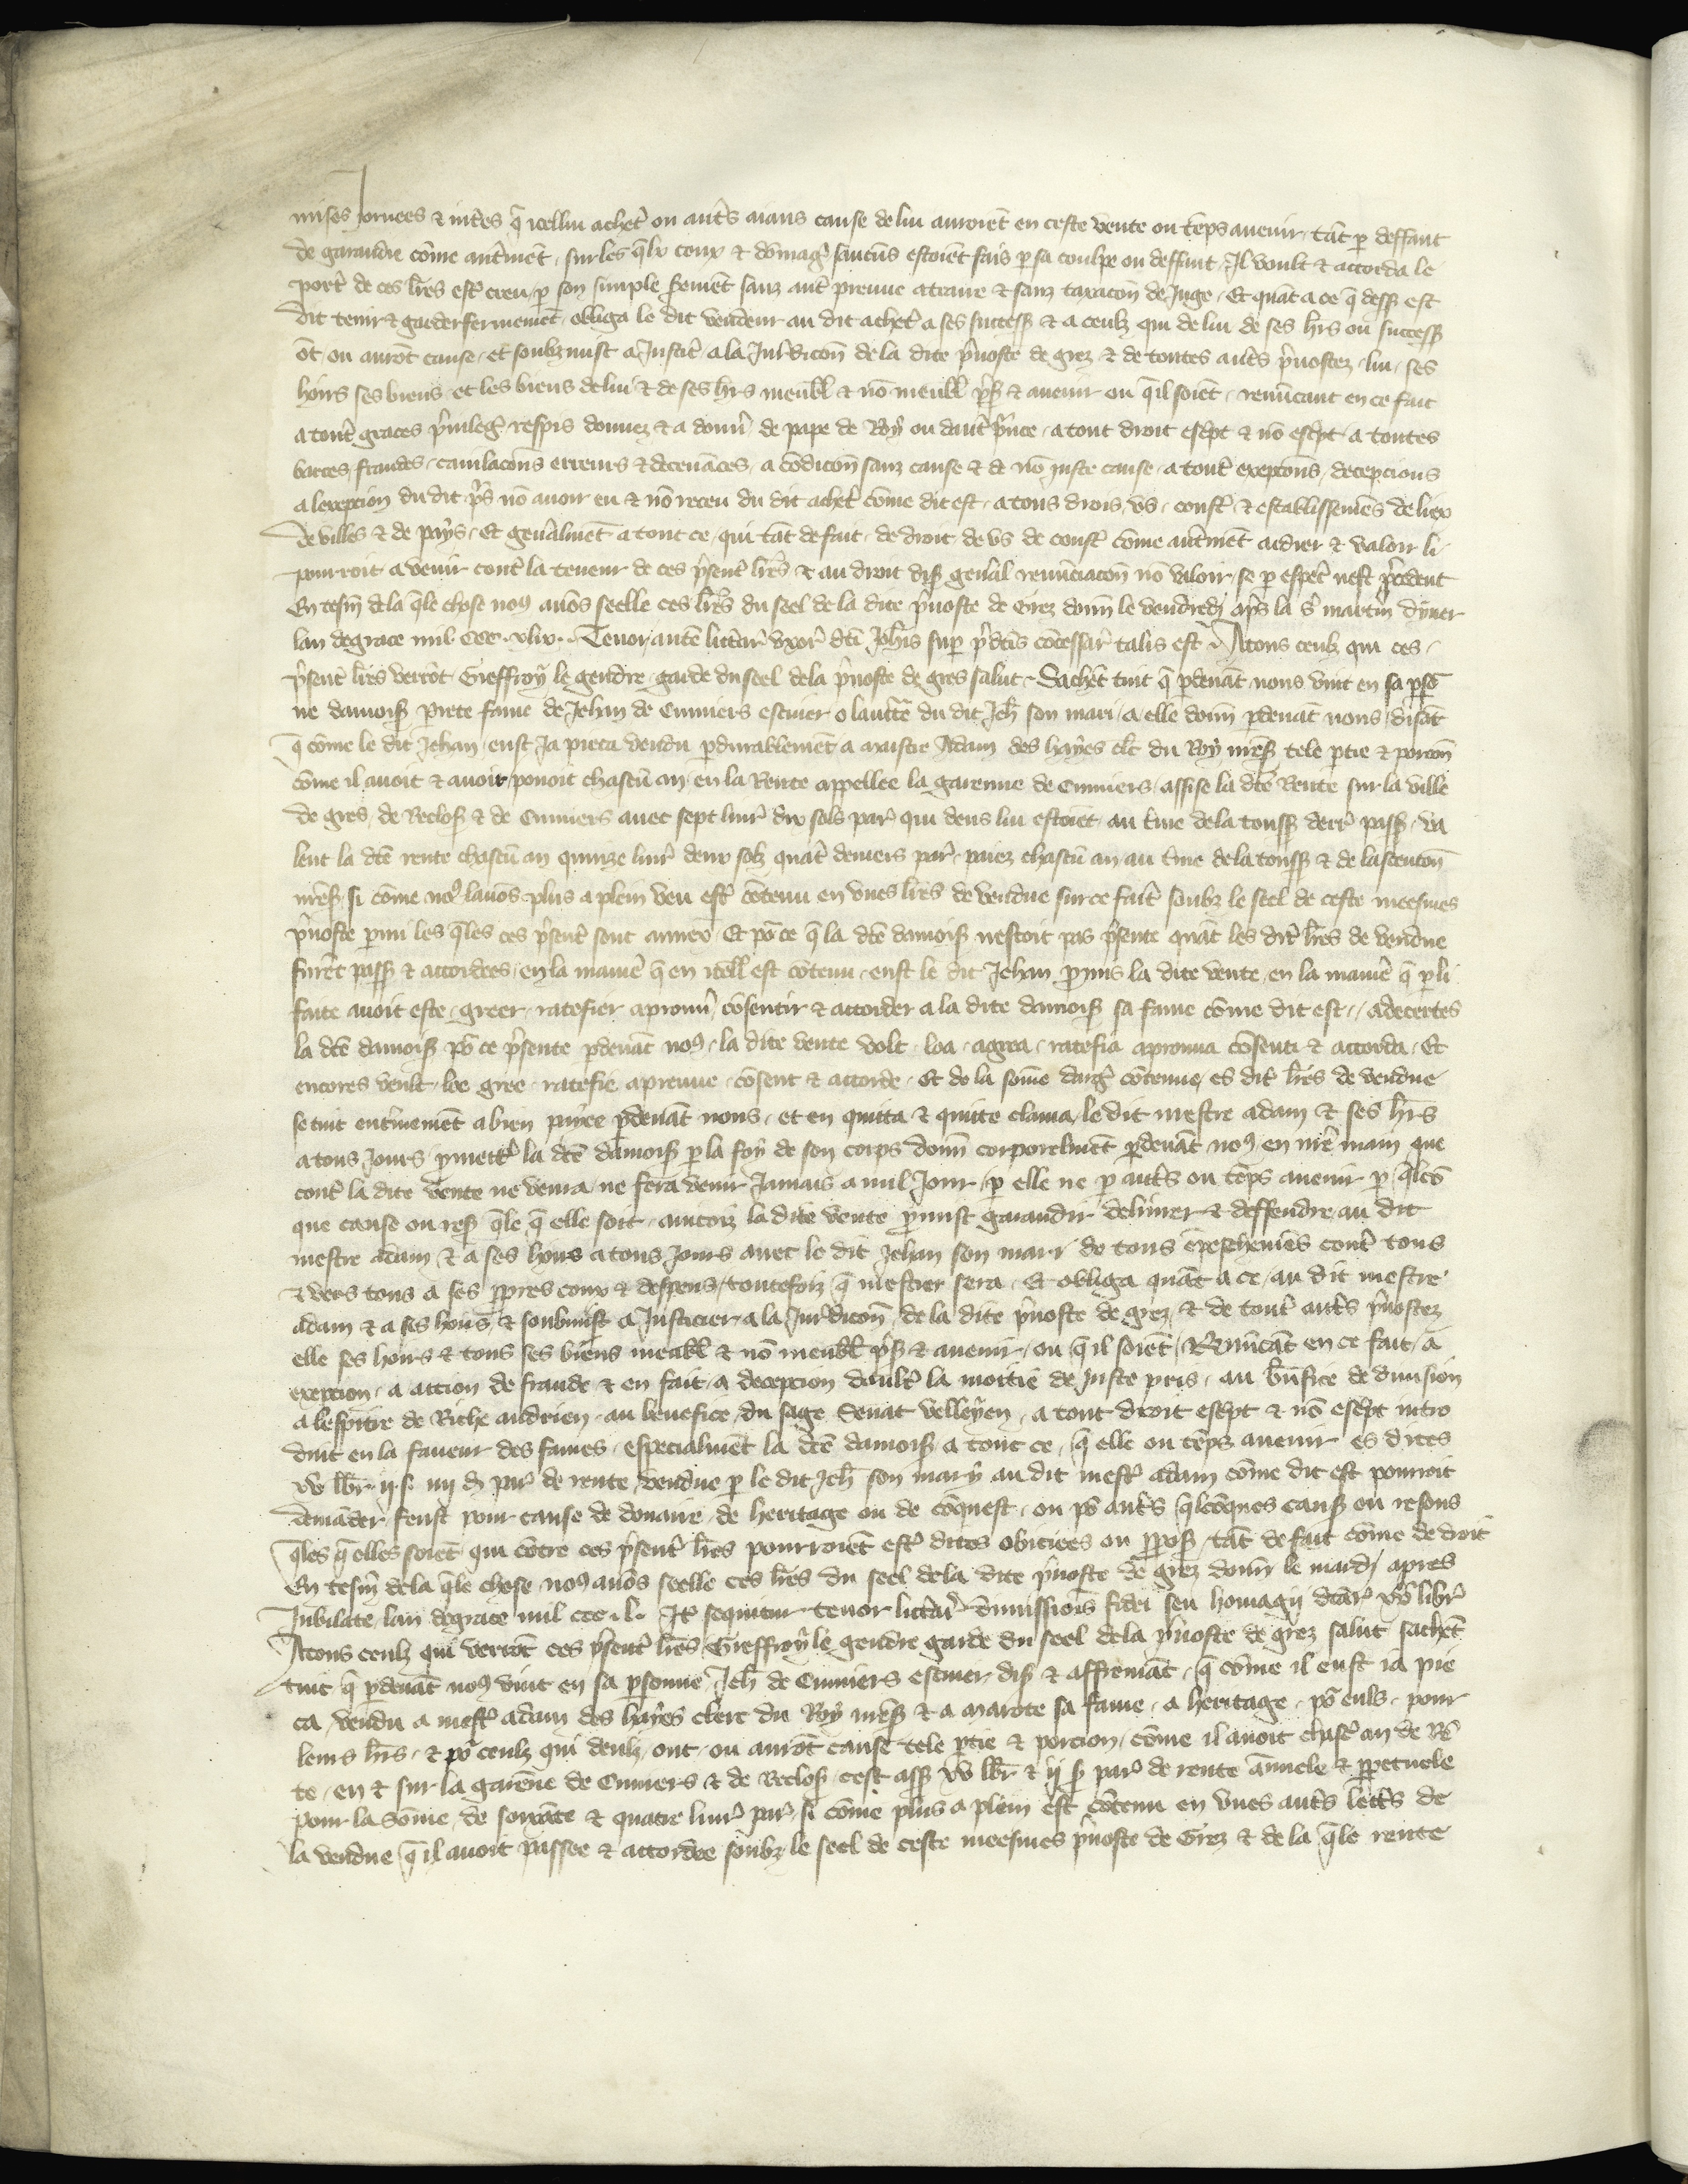 mises journees & intes q̄ icellui achet ou autˢ aians cause de lui auroiēt en ceste vente ou tēps auenir tāt p deffaut
de garandie cōme aut̄mēt, sur les q̄lx coux & dōmag̃ saucūs estoiēt fais p sa coulpe ou deffaut, Il voult & accorda le
port̃ de ces lr̃es estr̃ creu p son simple s̃emēt sanz autr̃ preuue atraire & sanz taxacōn de Juge, Et quāt a ce q̄ dess9 est
dit tenir & garder fermemēt, obliga le dit vendeur au dit achet̃ a ses success9 & a ceulz qui de lui de ses hrs ou success9
ōt ou aurōt cause, et soubzmist a Justic̃ a la Jur̃dicōn de la dite p̃uoste de grez & de toutes autˢ p̃uostez, lui, ses
hoirs ses biens, et les biens de lui & de ses hrs meubl̃ & nō meubl̃ p̃s & auenir ou q̄ il soiēt, renūcant en ce fait
a tout̃ graces p̃uileg̃ respis donnez & a donñ de pape de Roy ou dautr̃ p̃nce, a tout droit escpt & nō escpt, a toutes
barres, fraudes, cauilacōns erreurs & deceuāces, a cōdicōn sanz cause & de nō juste cause, a tout̃ excepcōns, decepcions
a lexepcion du dit p̃s nō auoir eu & nō receu du dit achet̃ cōme dit est, a tous drois, vs, coust̃ & establissemēs de liex
de villes & de pays, Et gen̄alemēt a tout ce, qui tāt de fait, de droit de vs de coust̃ cōme aut̄mēt aidier & valoir li
pourroit a venir contr̃ la teneur de ces p̃sent̃ lr̃es & au droit dis9 gen̄al renūciacōn nō valoir, se p espec̃ nest p̃cedent
En tesm̃ de la q̄le chose no9 auōs seelle ces lr̃es du seel de la dite p̃uoste de Grez donñ le vendredi ap̃s la s̃ martin dyuer
lan de grace mil. ccc. xlix. Tenor autē litterar̃ vxor̃ dc̃i Joh̃is sup̃ p̃dc̃is cōcessar̃ talis est. A tous ceulz qui ces
p̃sent̃ lr̃es verrōt Gieffroy le gendre garde du seel de la p̃uoste de gres salut. Sachēt tuit q̄ pdeuāt nous vint en sa psō
ne damois9 perrete fame de Jehan de Cumiers escuier o lauttē du dit Jeh̃ son mari, a elle donñ pdeuāt nous, disāt
q̄ cōme le dit Jehan, eust Ja pieca vendu pdurablemēt a maistre Adam des hayes clc̃ du Roy nr̃es9 tele ptie & porcōn
cōme il auoit & auoir pouoit chascū an en la Rente appellee la garenne de Cumiers, assise la dc̃e Rente sur la ville
de gres, de Reclos9 & de Cumiers auec sept liur̃ dix sols par̃ qui deus lui estoiēt, au t̃me de la touss9 derr̃ pass9, va
lent la dc̃e rente chascū an quinze liur̃ deux solz quatr̃ deniers par̃, paiez chascū an au t̃me de la touss9 & de lascenciōn
nr̃es9 si cōme no9 lauōs plus a plein veu estr̃ cōtenu en vnes lr̃es de vendue sur ce fait̃ soubz le seel de ceste meesmes
p̃uoste pmi les q̄les ces p̃sent̃ sont annex̃, Et po ce q̄ la dc̃e damois9 nestoit pas p̃sente quāt les dit̃ lr̃es de vendue
furēt pass9 & accordees, en la manier̃ q̄ en icell̃ est cōtenu, eust le dit Jehan pmis la dite vente, en la manier̃ q̄ p li
faite auoit este, greer, ratefier aprouu̾, cōsentir & accorder a la dite damois9 sa fame cōme dit est, adecertes
la dc̃e damois9 po ce p̃sente pdeuāt no9, la dite vente volt, loa, agrea, ratefia aprouua cōsenti & accorda, Et
encores veult, loe gree, ratefie, apreuue, cōsent & accorde, Et de la sōme darg̃ cōtenue, es dit̃ lr̃es de vendue
se tint entir̃emēt a bien paiee pdeuāt nous, et en quitta & quitte clama le dit mestre adam & ses hrs
a tous Jours, pmett̃ la dc̃e damois9 p la foy de son corps donñ corporelmēt pdeuāt no9 en nr̃e main que
contr̃ la dite vente ne venra, ne fera venir Jamais a nul Jour, p elle ne p autˢ ou tēps auenir p q̄les
que cause ou res9 q̄le q̄ elle soit, aincois la dite vente pmist garandir deliurer & deffendre au dit
mestre adam & a ses hoirs a tous Jours auec le dit Jehan son mari de tous ēpeschemēs contr̃ tous
& vers tous a ses ppres coux & despens, toutefoiz q̄ mestier sera, Et obliga quāt a ce, au dit mestre
adam & a ses hoirs, & soubmist a Justicier a la Jur̃dicōn de la dite p̃uoste de grez, & de tout̃ autˢ p̃uostez
elle ses hoirs & tous ses biens meubl̃ & nō meubl̃ p̃s & auenir, ou q̄ il soiēt, Renūcāt en ce fait, a
exepcion, a accion de fraude & en fait, a decepcion doultr̃ la moitie de juste pris, au bñfice de diuision
a lespitre de Riche andrien, au benefice du sage Senat velleyen, a tout droit escpt & nō escpt intro
duit en la faueur des fames, especialmēt la dc̃e damois9 a tout ce, q̄ elle ou tēps auenir es dites
xv lbr̃ ij s. iiij d par̃ de rente, vendue p le dit Jeh̃ son mary au dit mestr̃ adam cōme dit est pourroit
demāder, feust pour cause de douaire, de heritage ou de cōquest, ou po autˢ q̄lcōques caus9 ou resons
q̄les q̄ elles soiēt, qui cōtre ces p̃sent̃ lr̃es pourroiēt estr̃ dittes obiciees ou ppos9, tāt de fait cōme de droit
En tesm̃ de la q̄le chose no9 auōs seelle ces lr̃es du seel de la dite p̃uoste de grez donñ le mardi apres
Jubilate, lan de grace mil ccc. l. Itē sequitur tenor litterar̃ dimissiōis fidei seu homagij dc̃ar̃ xv libr̃
A tous ceulz qui verrōt ces p̃sent̃ lr̃es Gieffroy le gendre garde du seel de la p̃uoste de grez salut sachēt
tuit q̄ pdeuāt no9 vint en sa psonne, Jeh̃ de Cumiers escuier, dis9 & affermāt, q̄ cōme il eust ia pie
ca, vendu a mestr̃ adam des hayes clerc du Roy nr̃es9 & a marote sa fame, a heritage, po euls, pour
leurs hrs, & po ceulz qui deulz, ont, ou aurōt cause tele ptie & porcion, cōme il auoit chasc̃ an de Rē
te, en & sur la garēne de Cumiers & de Reclos9 cest ass9 xv lbr̃ & ij s9 par̃ de rente ānuele & ppetuele
pour la sōme, de soixāte & quatre liur̃ par̃, si cōme plus a plein est cōtenu en vnes autˢ lettˢ de
la vendue q̄ il auoit passee & accordee soubz le seel de ceste meesmes p̃uoste de Grez & de la q̄le rente